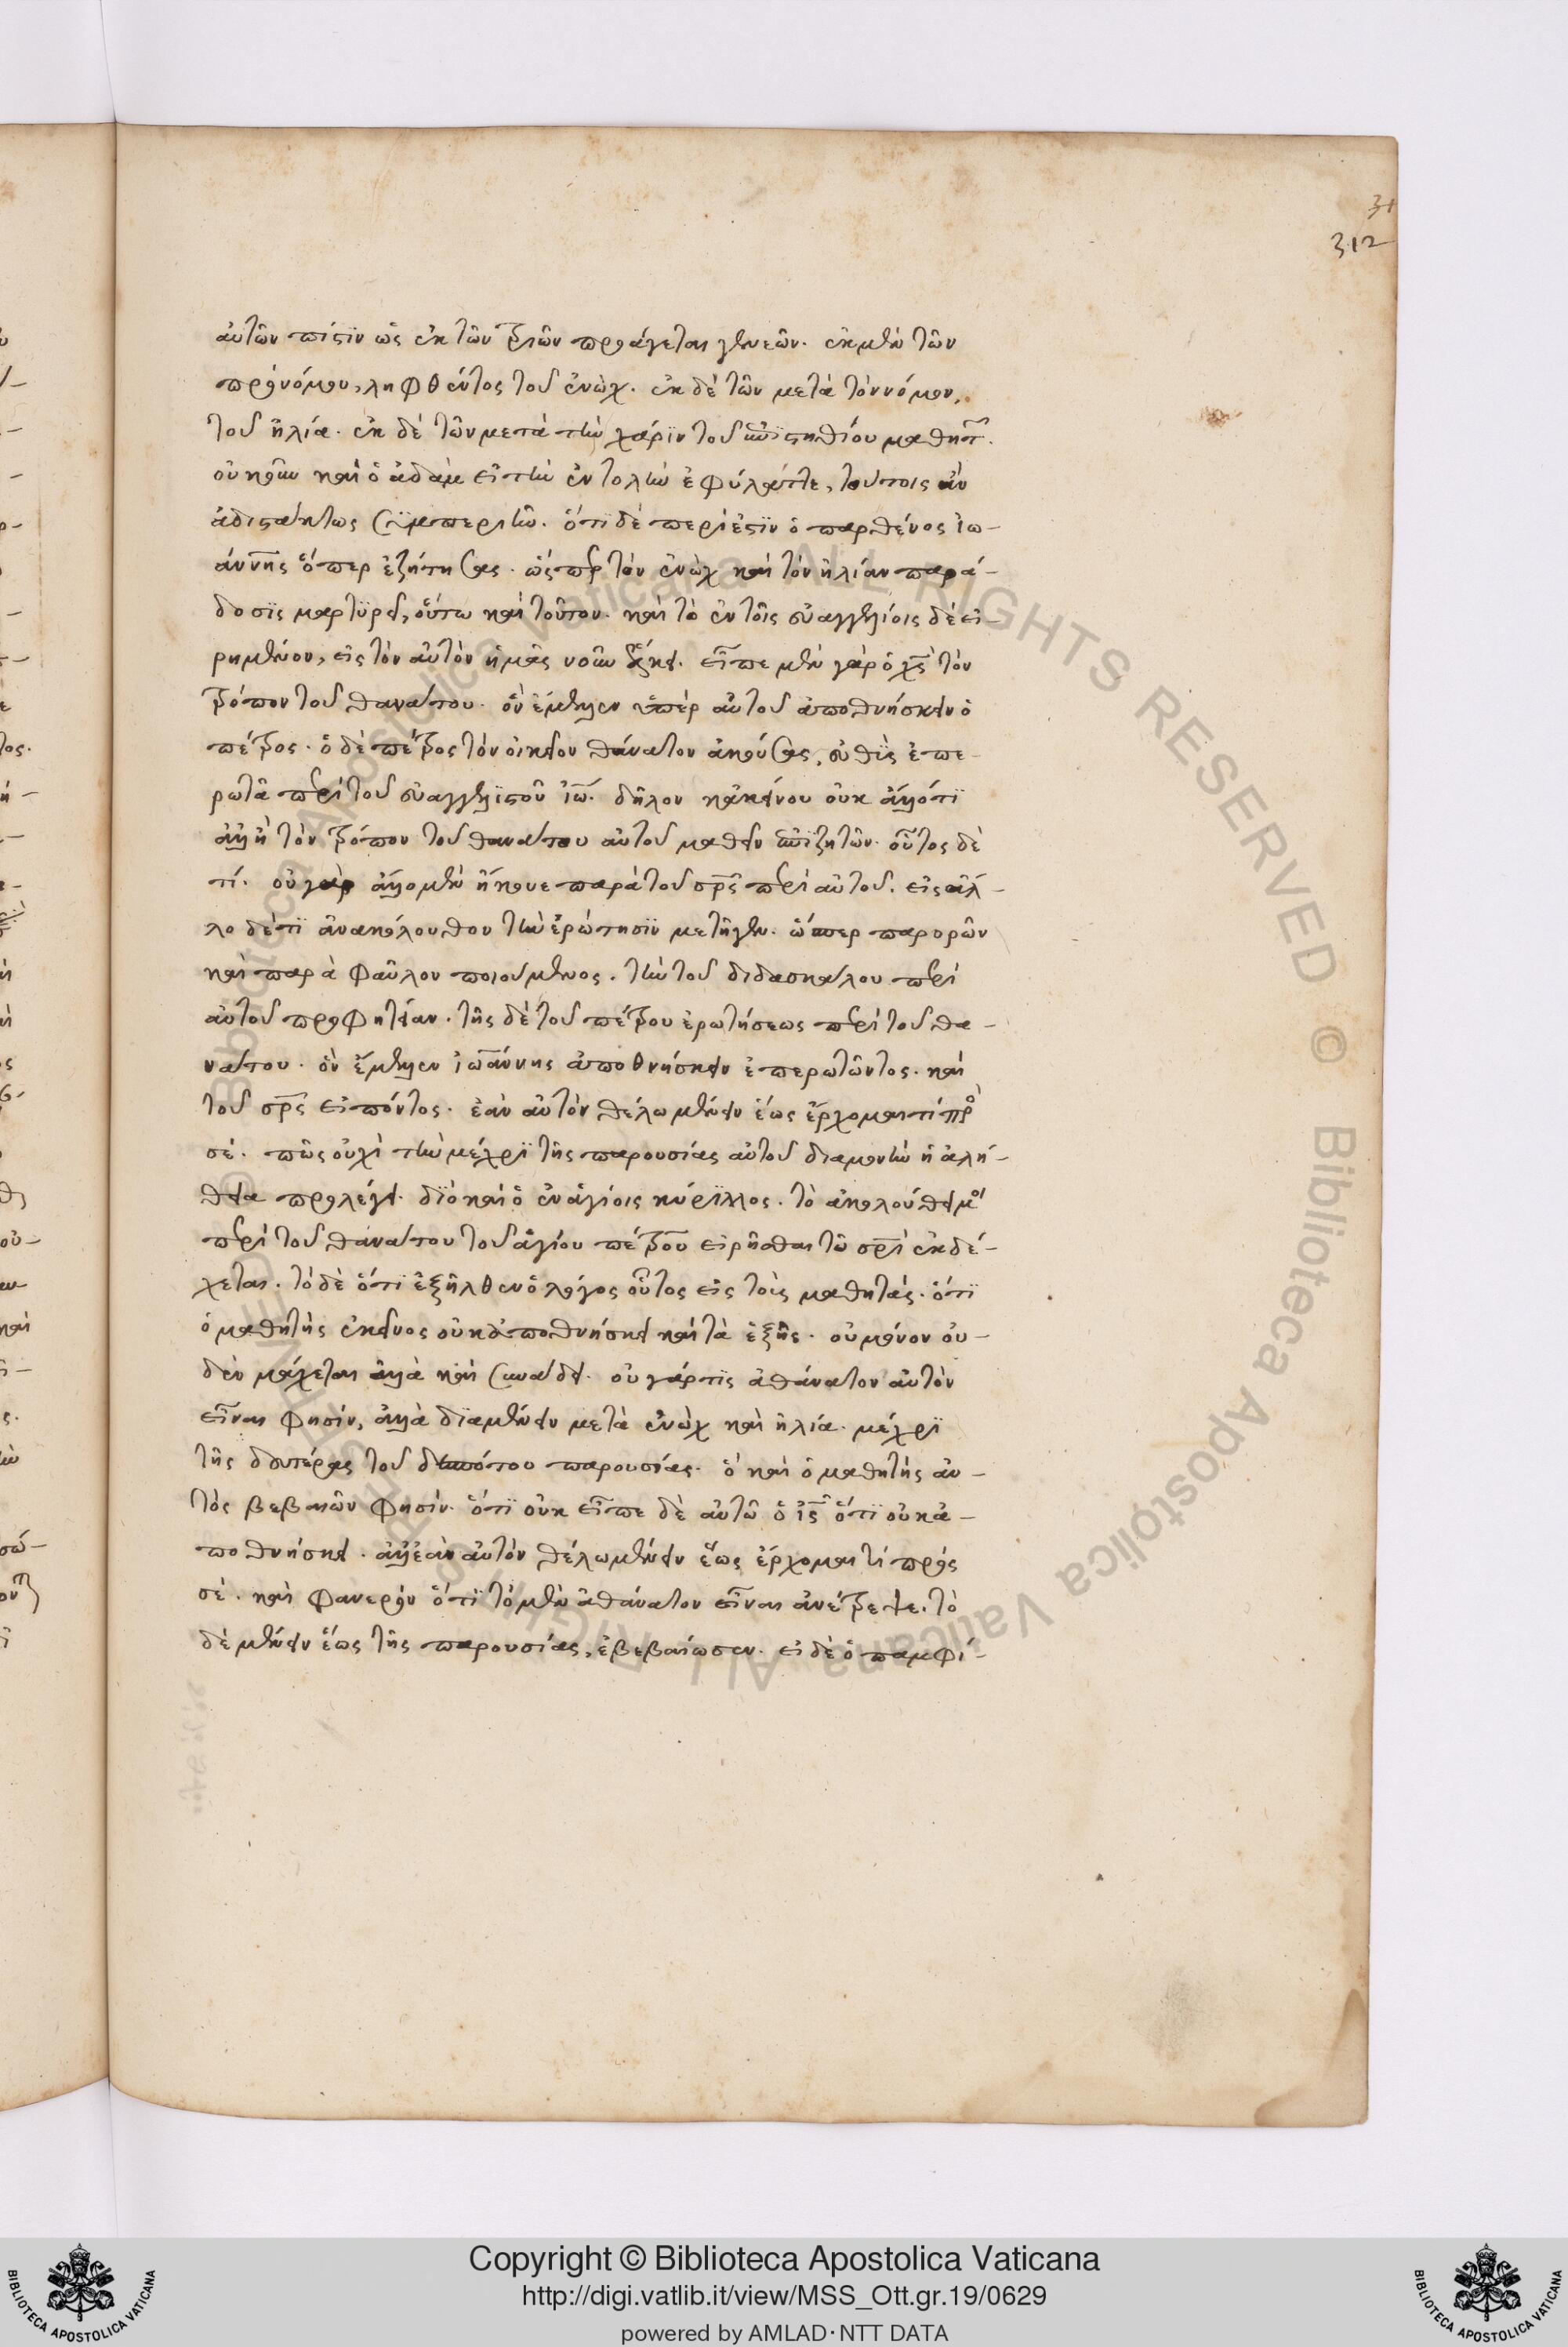 31
312
αὐτῶν πίςϊν ὡς ἐκ τῶν τριῶν προάγεται γενεῶν. ἐκ μὲν τῶν
πρὸ νόμου, ληφθέντος τοῦ ἐνὼχ. ἐκ δὲ τῶν μετὰ τὸν νόμον,
τοῦ ἠλία. ἐκ δὲ τῶν μετὰ τὴν χάρϊν τοῦ ἐπιςηθίου μαθητ.
οὐκοῦν καὶ ὁ ἀδὰμ εἰ τὴν ἐντολὴν ἐφύλαττε, τούτοις ἂν
ἀδιςάκτως συμπεριῆν. ὅτϊ δὲ περίεςϊν ὁ παρθένος ἰω-
άννης ὅπερ ἐζήτησας. ὥςπερ τὸν ἐνὼχ καὶ τὸν ἠλίαν παρά-
δοσϊς μαρτϋρεῖ, οὕτω καὶ τοῦτον. καὶ τὸ ἐν τοῖς εὐαγγελίοις δὲ εἰ-
ρημένον, εἰς τὸν αὐτὸν ἡμᾶς νοῦν ἕλκει. εἶπε μὲν γὰρ ὁ χς τὸν
τρόπον τοῦ θανάτου. ὃν ἔμελλεν ὑπὲρ αὐτοῦ ἀποθνήσκειν ὁ
πέτρος. ὁ δὲ πέτρος τὸν οἰκεῖον θάνατον ἀκούσας, εὐθὺς ἐπε-
ρωτᾶ περὶ τοῦ εὐαγγελϊςοῦ ἰω. δῆλον κἀκείνου οὐκ ἄλλό τϊ
ἀλλ' ἢ τὸν τρόπον τοῦ θανάτου αὐτοῦ μαθεῖν ἐπϊζητῶν. οὗτος δὲ
τί. οὐ γὰρ ἄλλο μὲν ἤκουε παρὰ τοῦ σρς περὶ αὐτοῦ. εἰς ἄλ-
λο δέ τϊ ἀνακόλουθον τὴν ἐρώτησϊν μετῆγεν. ὥσπερ παρορῶν
καὶ παρὰ φαῦλον ποιούμενος. τὴν τοῦ διδασκάλου περὶ
αὐτοῦ προφητείαν. τῆς δὲ τοῦ πέτρου ἐρωτήσεως περὶ τοῦ θα-
νάτου. ὃν ἔμελλεν ἰωάννης ἀποθνήσκειν ἐπερωτῶντος. καὶ
τοῦ σρς εἰπόντος. ἐὰν αὐτὸν θέλω μένειν ἕως ἔρχομαι τί πρὸ
σέ. πῶς οὐχὶ τὴν μέχρϊ τῆς παρουσίας αὐτοῦ διαμονὴν ἡ ἀλή-
θεια προλέγει. δϊὸ καὶ ὁ ἐν ἁγίοις κύρϊλλος. τὸ ἀκολούθει μοι
περὶ τοῦ θανάτου τοῦ ἁγίου πέτρου εἰρῆσθαι τῶ σρι ἐκδέ-
χεται. τὸ δὲ ὅτϊ ἐξῆλθεν ὁ λόγος οὗτος εἰς τοὺς μαθητάς. ὅτϊ
ὁ μαθητὴς ἐκεῖνος οὐκ ἀποθνήσκει καὶ τὰ ἑξῆς. οὐ μόνον οὐ-
δὲν μάχεται ἀλλὰ καὶ συνάδει. οὐ γάρ τϊς ἀθάνατον αὐτὸν
εἶναι φησὶν, ἀλλὰ δϊαμένειν μετὰ ἐνὼχ καὶ ἠλία. μέχρϊ
τῆς δευτέρας τοῦ δεσπότου παρουσίας. ὃ καὶ ὁ μαθητὴς αὐ-
τὸς βεβαιῶν φησὶν. ὅτϊ οὐκ εἶπε δὲ αὐτῶ ὁ ις ὅτϊ οὐκ ἀ-
ποθνήσκει. ἀλλ' ἐὰν αὐτὸν θέλω μένειν ἕως ἔρχομαι τί πρὸς
σέ. καὶ φανερὸν ὅτϊ τὸ μὲν ἀθάνατον εἶναι ἀνέτρεψε. τὸ
δὲ μένειν ἕως τῆς παρουσίας, ἐβεβαίωσεν. εἰ δὲ ὁ παμφί-
Copyright © Biblioteca Apostolica Vaticana
http://digi.vatlib.it/view/MSS_Ott.gr.19/0629
powered by AMLAD·NTT DATA